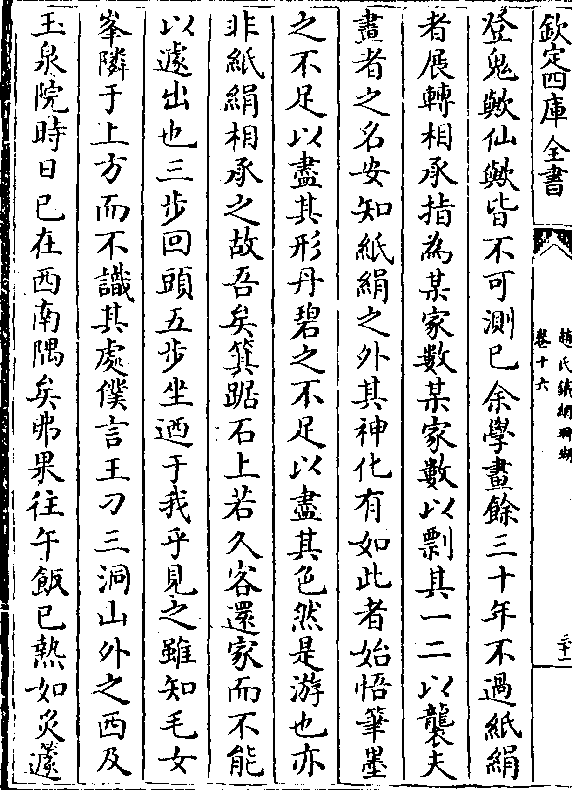 欽定四庫全書
趙氏鐵網珊瑚
卷十六
三十一
登鬼歟仙歟皆不可測已余學畫餘三十年不過紙絹
者展轉相承指為某家數某家數以剽其一二以襲夫
畫者之名安知紙絹之外其神化有如此者始悟筆墨
之不足以盡其形丹碧之不足以盡其色然是游也亦
非紙絹相承之故吾矣箕踞石上若久客還家而不能
以遽出也三步回頭五步坐迺于我乎見之雖知毛女
峯隣于上方而不識其處僕言王刁三洞山外之西及
玉泉院時日已在西南隅矣弗果往午飯已熟如炙蘧